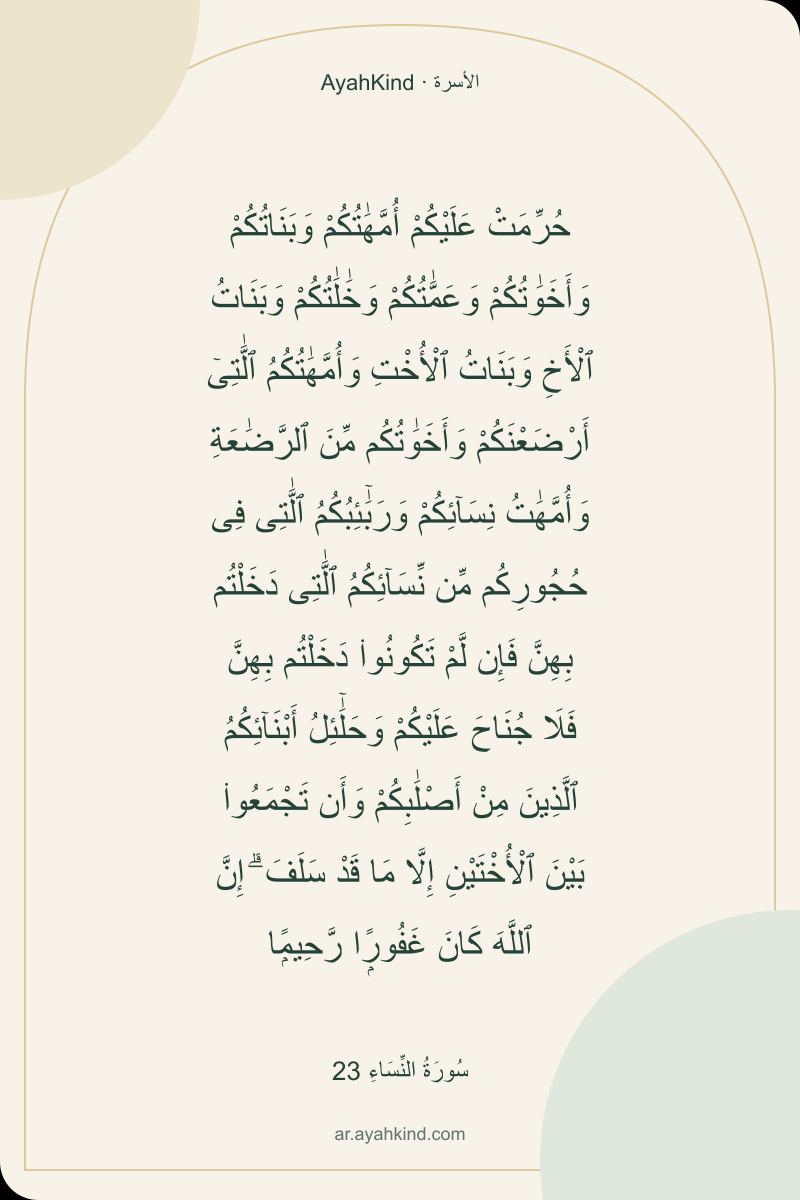 AyahKind · الأسرة
حُرِّمَتْ عَلَيْكُمْ أُمَّهَٰتُكُمْ وَبَنَاتُكُمْ
وَأَخَوَٰتُكُمْ وَعَمَّٰتُكُمْ وَخَٰلَٰتُكُمْ وَبَنَاتُ
ٱلْأَخِ وَبَنَاتُ ٱلْأُخْتِ وَأُمَّهَٰتُكُمُ ٱلَّٰتِىٓ
أَرْضَعْنَكُمْ وَأَخَوَٰتُكُم مِّنَ ٱلرَّضَٰعَةِ
وَأُمَّهَٰتُ نِسَآئِكُمْ وَرَبَٰٓئِبُكُمُ ٱلَّٰتِى فِى
حُجُورِكُم مِّن نِّسَآئِكُمُ ٱلَّٰتِى دَخَلْتُم
بِهِنَّ فَإِن لَّمْ تَكُونُوا۟ دَخَلْتُم بِهِنَّ
فَلَا جُنَاحَ عَلَيْكُمْ وَحَلَٰٓئِلُ أَبْنَآئِكُمُ
ٱلَّذِينَ مِنْ أَصْلَٰبِكُمْ وَأَن تَجْمَعُوا۟
بَيْنَ ٱلْأُخْتَيْنِ إِلَّا مَا قَدْ سَلَفَ ۗ إِنَّ
ٱللَّهَ كَانَ غَفُورًۭا رَّحِيمًۭا
سُورَةُ النِّسَاءِ 23
ar.ayahkind.com